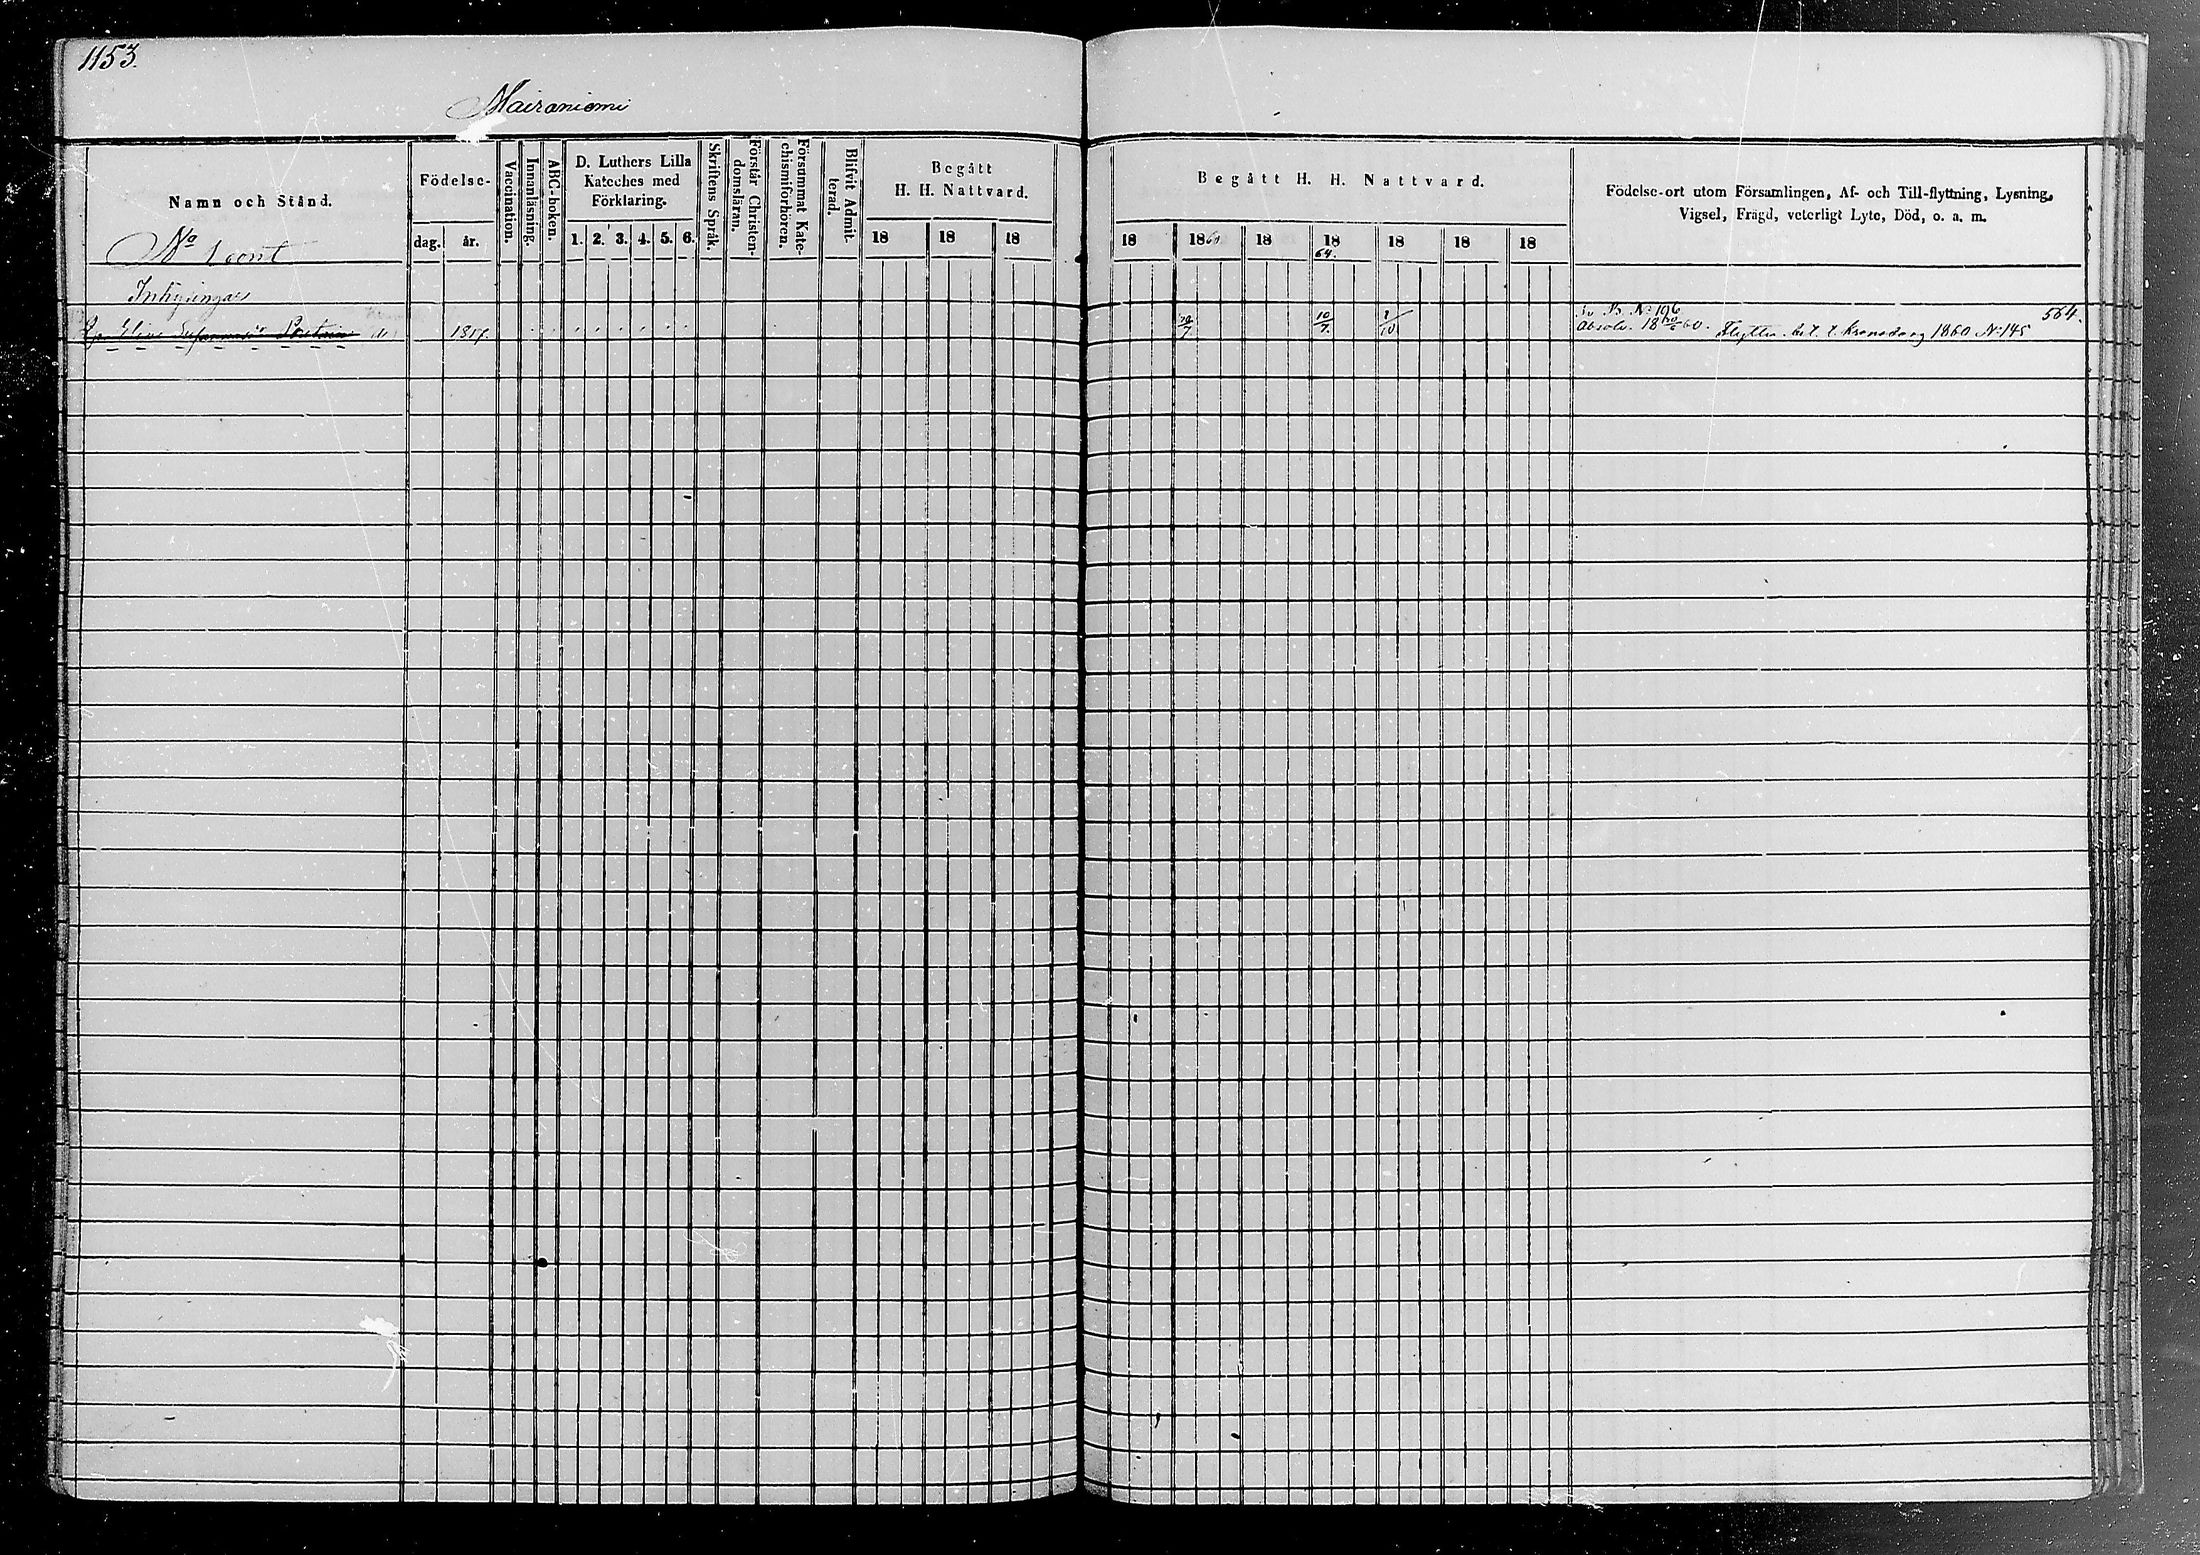 1153.
Mairaniemi
Namn och Stånd.
Födelse-
dag. år.
Vaccination.
Innanläsning.
ABC-boken.
D. Luthers Lilla
Kateches med
Förklaring.
1. 2. 3. 4. 5. 6.
Skriftens Språk.
Förstår Christen-
domsläran.
Försummat Kate-
chismiförhören.
Blifvit Admit-
terad.
Begått
H. H. Nattvard.
18 18 18
Begått H. H. Nattvard.
18 1860 18 18 64. 18 18 18
Födelse-ort utom Församlingen, Af- och Till-flyttning, Lysning,
Vigsel, Frägd, veterligt Lyte, Död, o. a. m.
No 1 cont
Inhysingar
1817. 10/7. 8/10. No 196
564.
Absolv. 18 60. 1860 No 145